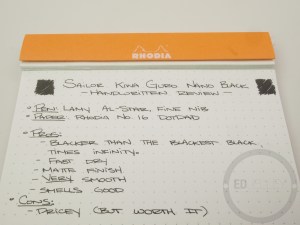 RHODIA
SAILOR KIWA GURO NANO BLACK
- HANDWRITTEN REVIEW -
• PEN: LAMY AL-STAR, FINE NIB
• PAPER: RHODIA NO. 16 DOTPAD
• PROS:
- BLACKER THAN THE BLACKEST BLACK,
TIMES INFINITY.
- FAST DRY
- MATTE FINISH
- VERY SMOOTH
- SMELLS GOOD
• CONS:
- PRICEY (BUT WORTH IT)
ED